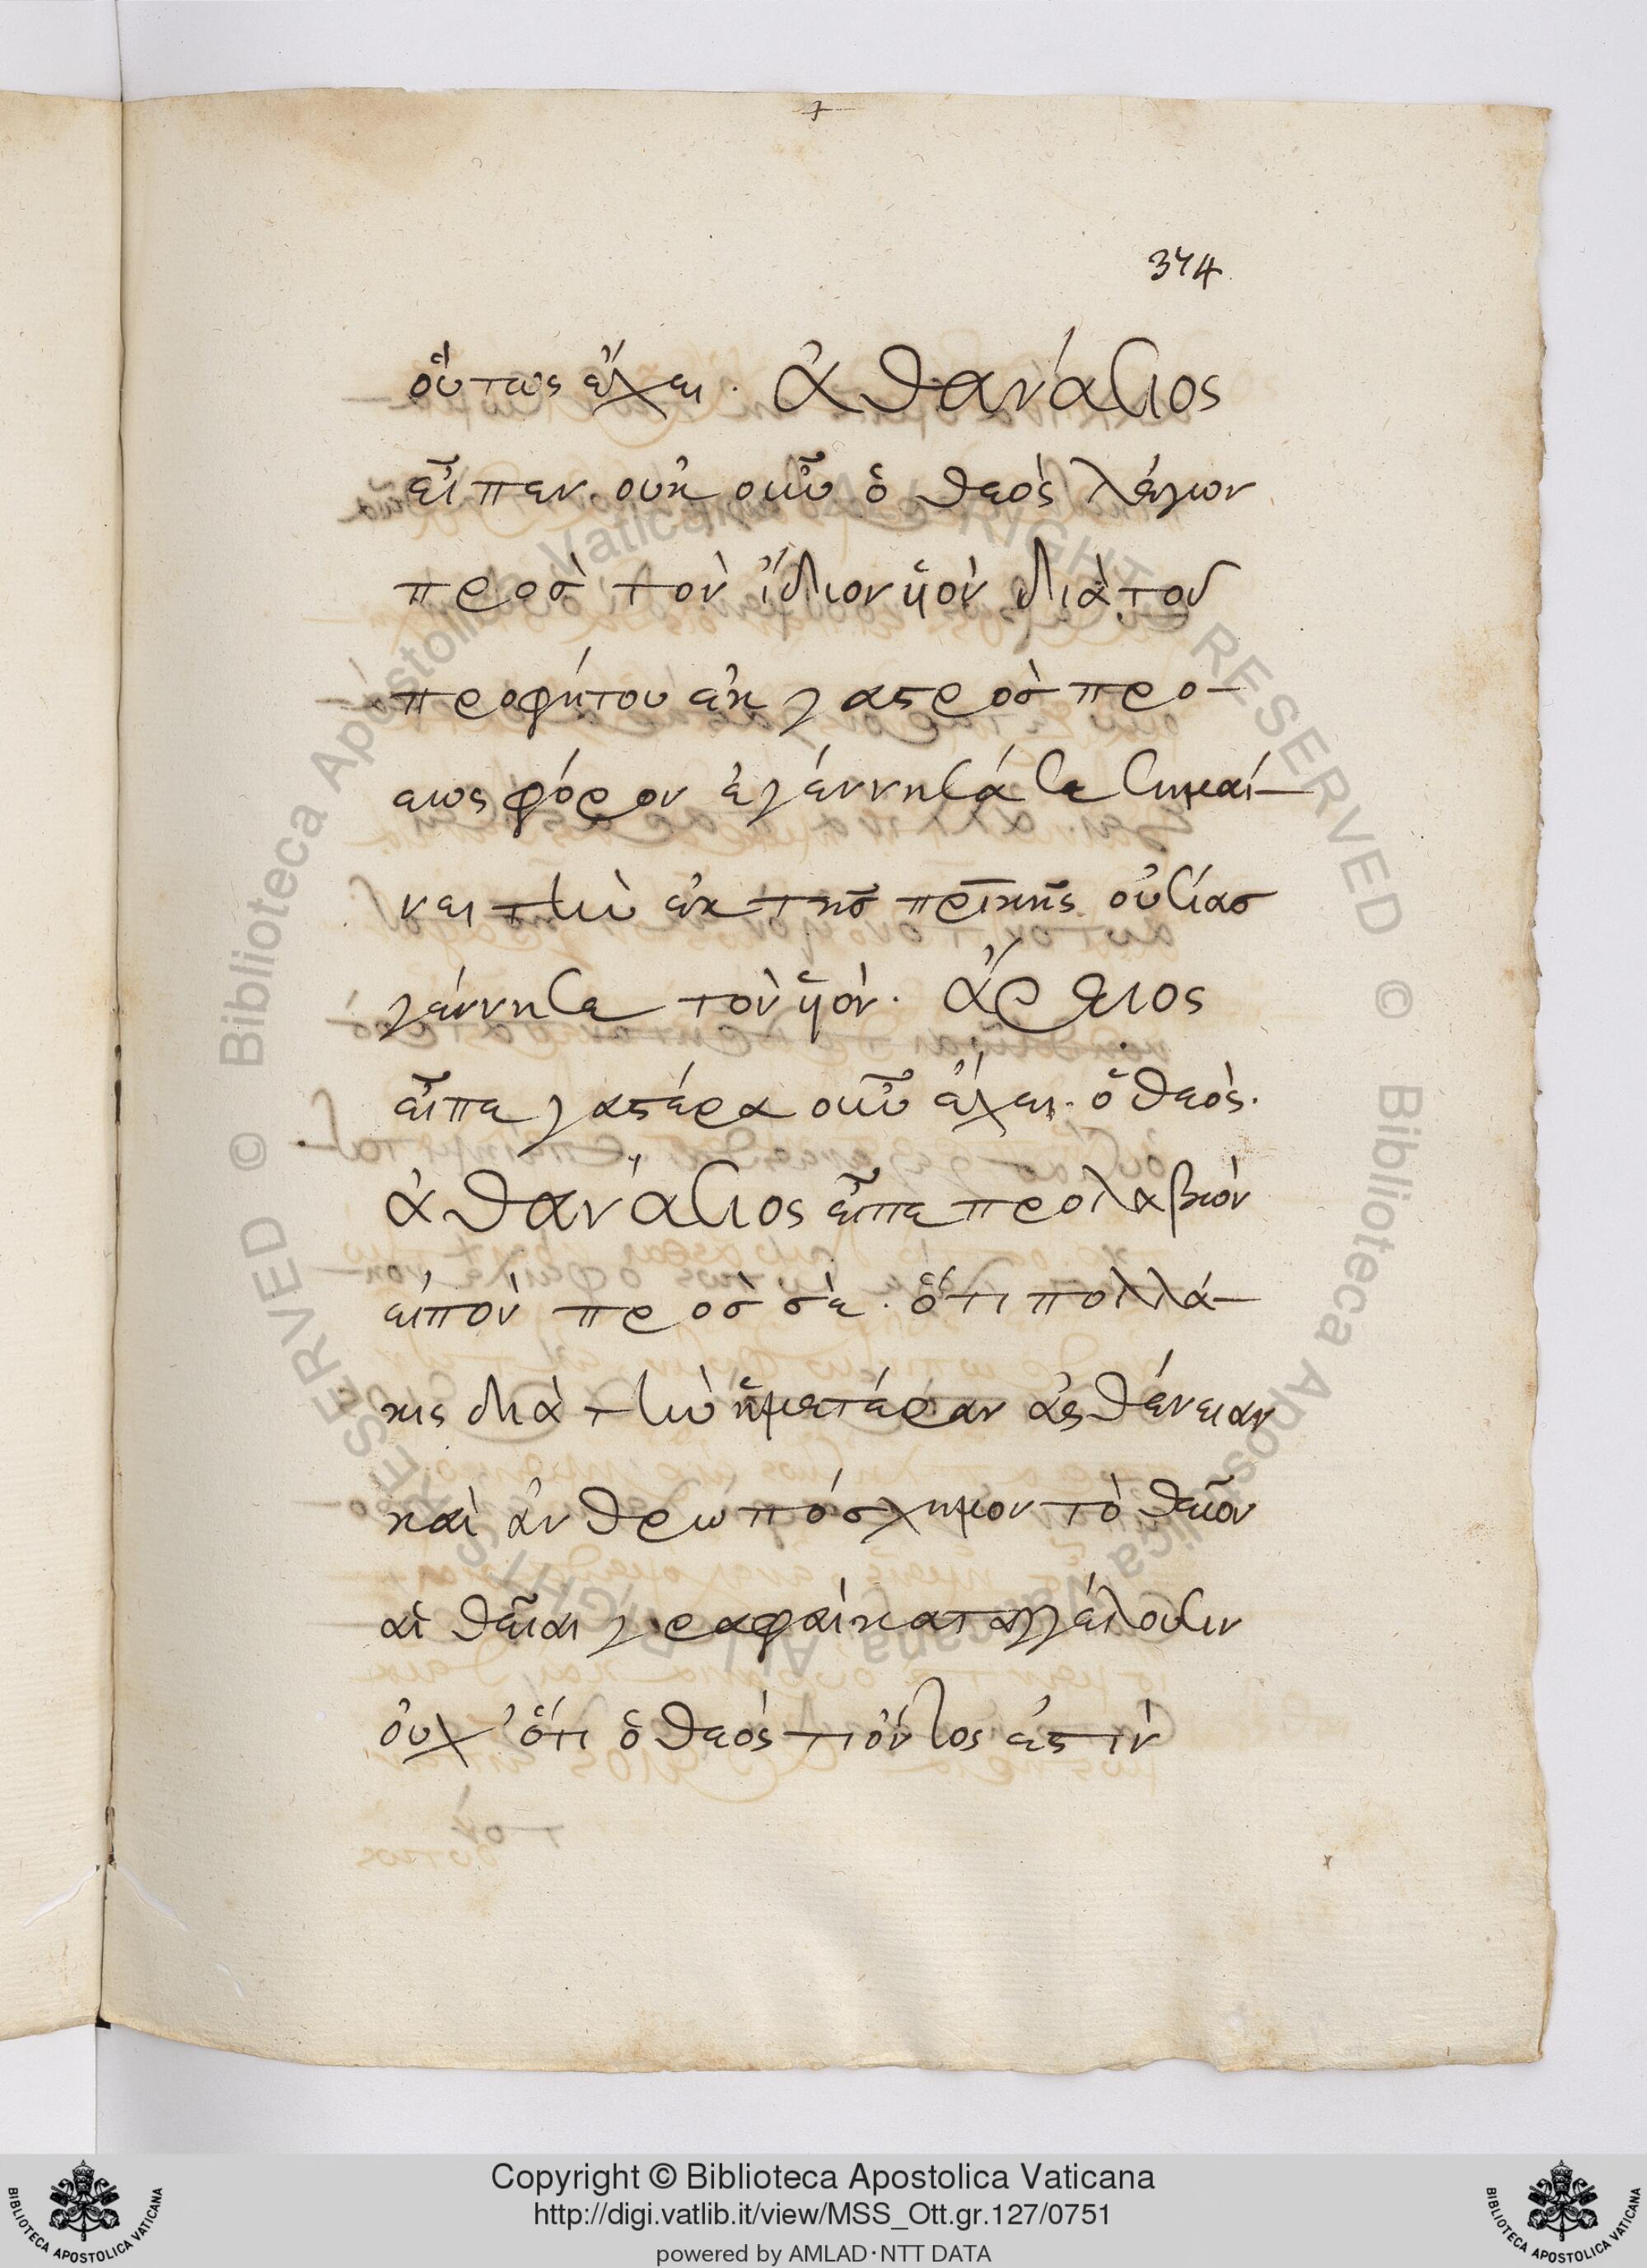 374
οὕτως ἔχει. ἀθανάσιος
εἶπεν. οὐκ οὖν ὁ θεὸς λέγων
πρὸσ τὸν ἴδιον ὑὸν διὰ τοῦ
προφήτου ἐκ γαστρὸσ προ-
εωςφόρου ἐγέννησά σε σημαί-
νει τὴν ἐκ τῆσ πρικῆς οὐσίασ
γέννησε τὸν ὑὸν. ἄρειος
εἶπε γαστέρα οὖν ἔχει. ὁ θεὸς.
ἀθανάσιος εἶπε προλαβὼν
εἰπὸν πρὸσ σὲ. ὅτι πολλά-
κις διὰ τὴν ἡμετέραν ἀσθένειαν
καὶ ἀνθρωπόσχημον τὸ θεῖον
αἱ θεῖαι γραφαὶ καταγγέλουσιν
οὐχ' ὅτι ὁ θεὸς τιόντος ἐστὶν
Copyright © Biblioteca Apostolica Vaticana
http://digi.vatlib.it/view/MSS_Ott.gr.127/0751
powered by AMLAD·NTT DATA
BIBLIOTECA APOSTOLICA VATICANA
BIBLIOTECA APOSTOLICA VATICANA